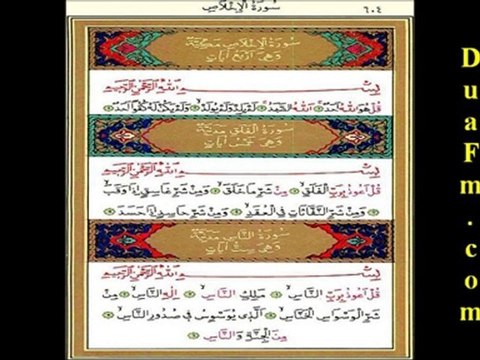 سورة الإخلاص ٦٠٤
سورة الإخلاص مكية
وهي أربع آيات
بسم الله الرحمن الرحيم
قل هو الله أحد الله الصمد لم يلد ولم يولد ولم يكن له كفوا أحد
سورة الفلق مدنية
وهي خمس آيات
بسم الله الرحمن الرحيم
قل أعوذ برب الفلق من شر ما خلق ومن شر غاسق إذا وقب
ومن شر النفاثات في العقد ومن شر حاسد إذا حسد
سورة الناس مدنية
وهي ست آيات
بسم الله الرحمن الرحيم
قل أعوذ برب الناس ملك الناس إله الناس من
شر الوسواس الخناس الذي يوسوس في صدور الناس
من الجنة والناس
DuaFm.com